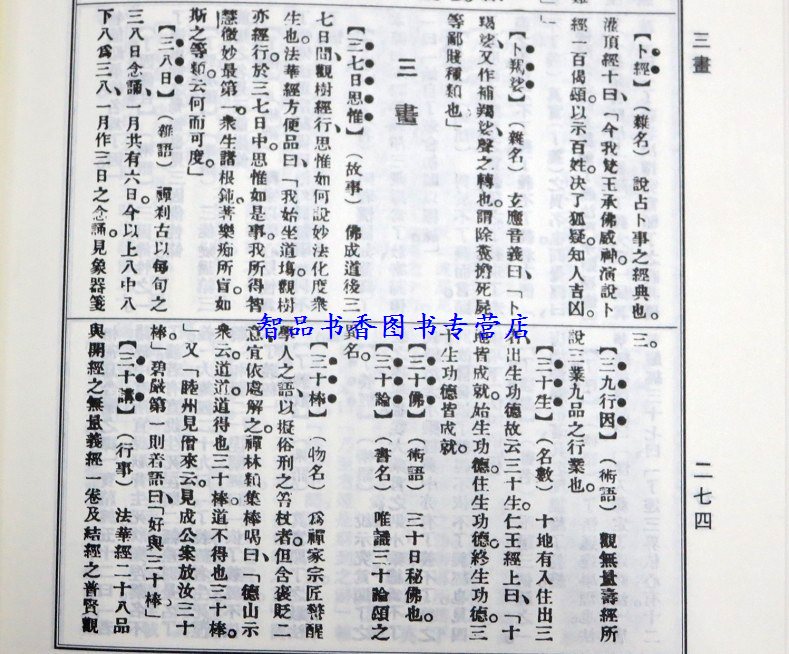 三畫
二七四
【卜經】(雜名)說占卜事之經典也。
灌頂經十曰「今我梵王承佛威神演說卜
經一百偈頌以示百姓決了狐疑知人吉凶。
」
【卜羯娑】(雜名)玄應音義曰「卜
羯娑又作補羯娑聲之轉也謂除糞擔死屍
等鄙賤種類也」
三畫
【三七日思惟】(故事)佛成道後三
七日間觀樹經行思惟如何說妙法化度衆
生也法華經方便品曰「我始坐道場觀樹
亦經行於三七日中思惟如是事我所得智
慧微妙最第一衆生諸根鈍著樂痴所盲如
斯之等類云何而可度」
【三八日】(雜語)禪刹古以每旬之
三八日念誦一月共有六日今以上八中八
下八爲三八一月作三日之念誦見象器箋
三。
【三九行因】(術語)觀無量壽經所
說三業九品之行業也。
【三十生】(名數)十地有入住出三
出生功德故云三十生仁王經上曰「十
地皆成就始生功德住生功德終生功德三
十生功德皆成就
【三十佛】(術語)三十日秘佛也。
【三十論】(書名)唯識三十論頌之
異名。
【三十棒】(物名)爲禪家宗匠警醒
學人之語以擬俗刑之笞杖者但含褒貶二
意宜依處解之禪林類集棒喝曰「德山示
衆云道道道得也三十棒道不得也三十棒。
」又「睦州見僧來云見成公案放汝三十
棒」碧嚴第一則著語曰「好與三十棒」
【三十講】(行事)法華經二十八品
與開經之無量義經一卷及結經之普賢觀
智品书香图书专营店